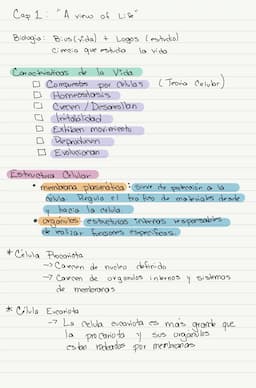 Cap 1: "A view of Life"
Biología: Bios (vida) + Logos (estudio)
Ciencia que estudia la vida
Características de la Vida
Compuestos por células (Teoría Celular)
Homeostasis
Crecen / Desarrollan
Irritabilidad
Exhiben movimiento
Reproducen
Evolucionan
Estructura Celular
• membrana plasmática: sirve de protección a la
célula. Regula el trafico de materiales desde
y hacia la celula
• organulos: estructuras internas responsables
de realizar funciones específicas.
* Célula Procariota
→ Carecen de nucleo definido
→ Carecen de organulos internos y sistemas
de membranas
* Célula Eucariota
→ La celula eucariota es más grande que
la procariota y sus organulos
estan rodeados por membranas